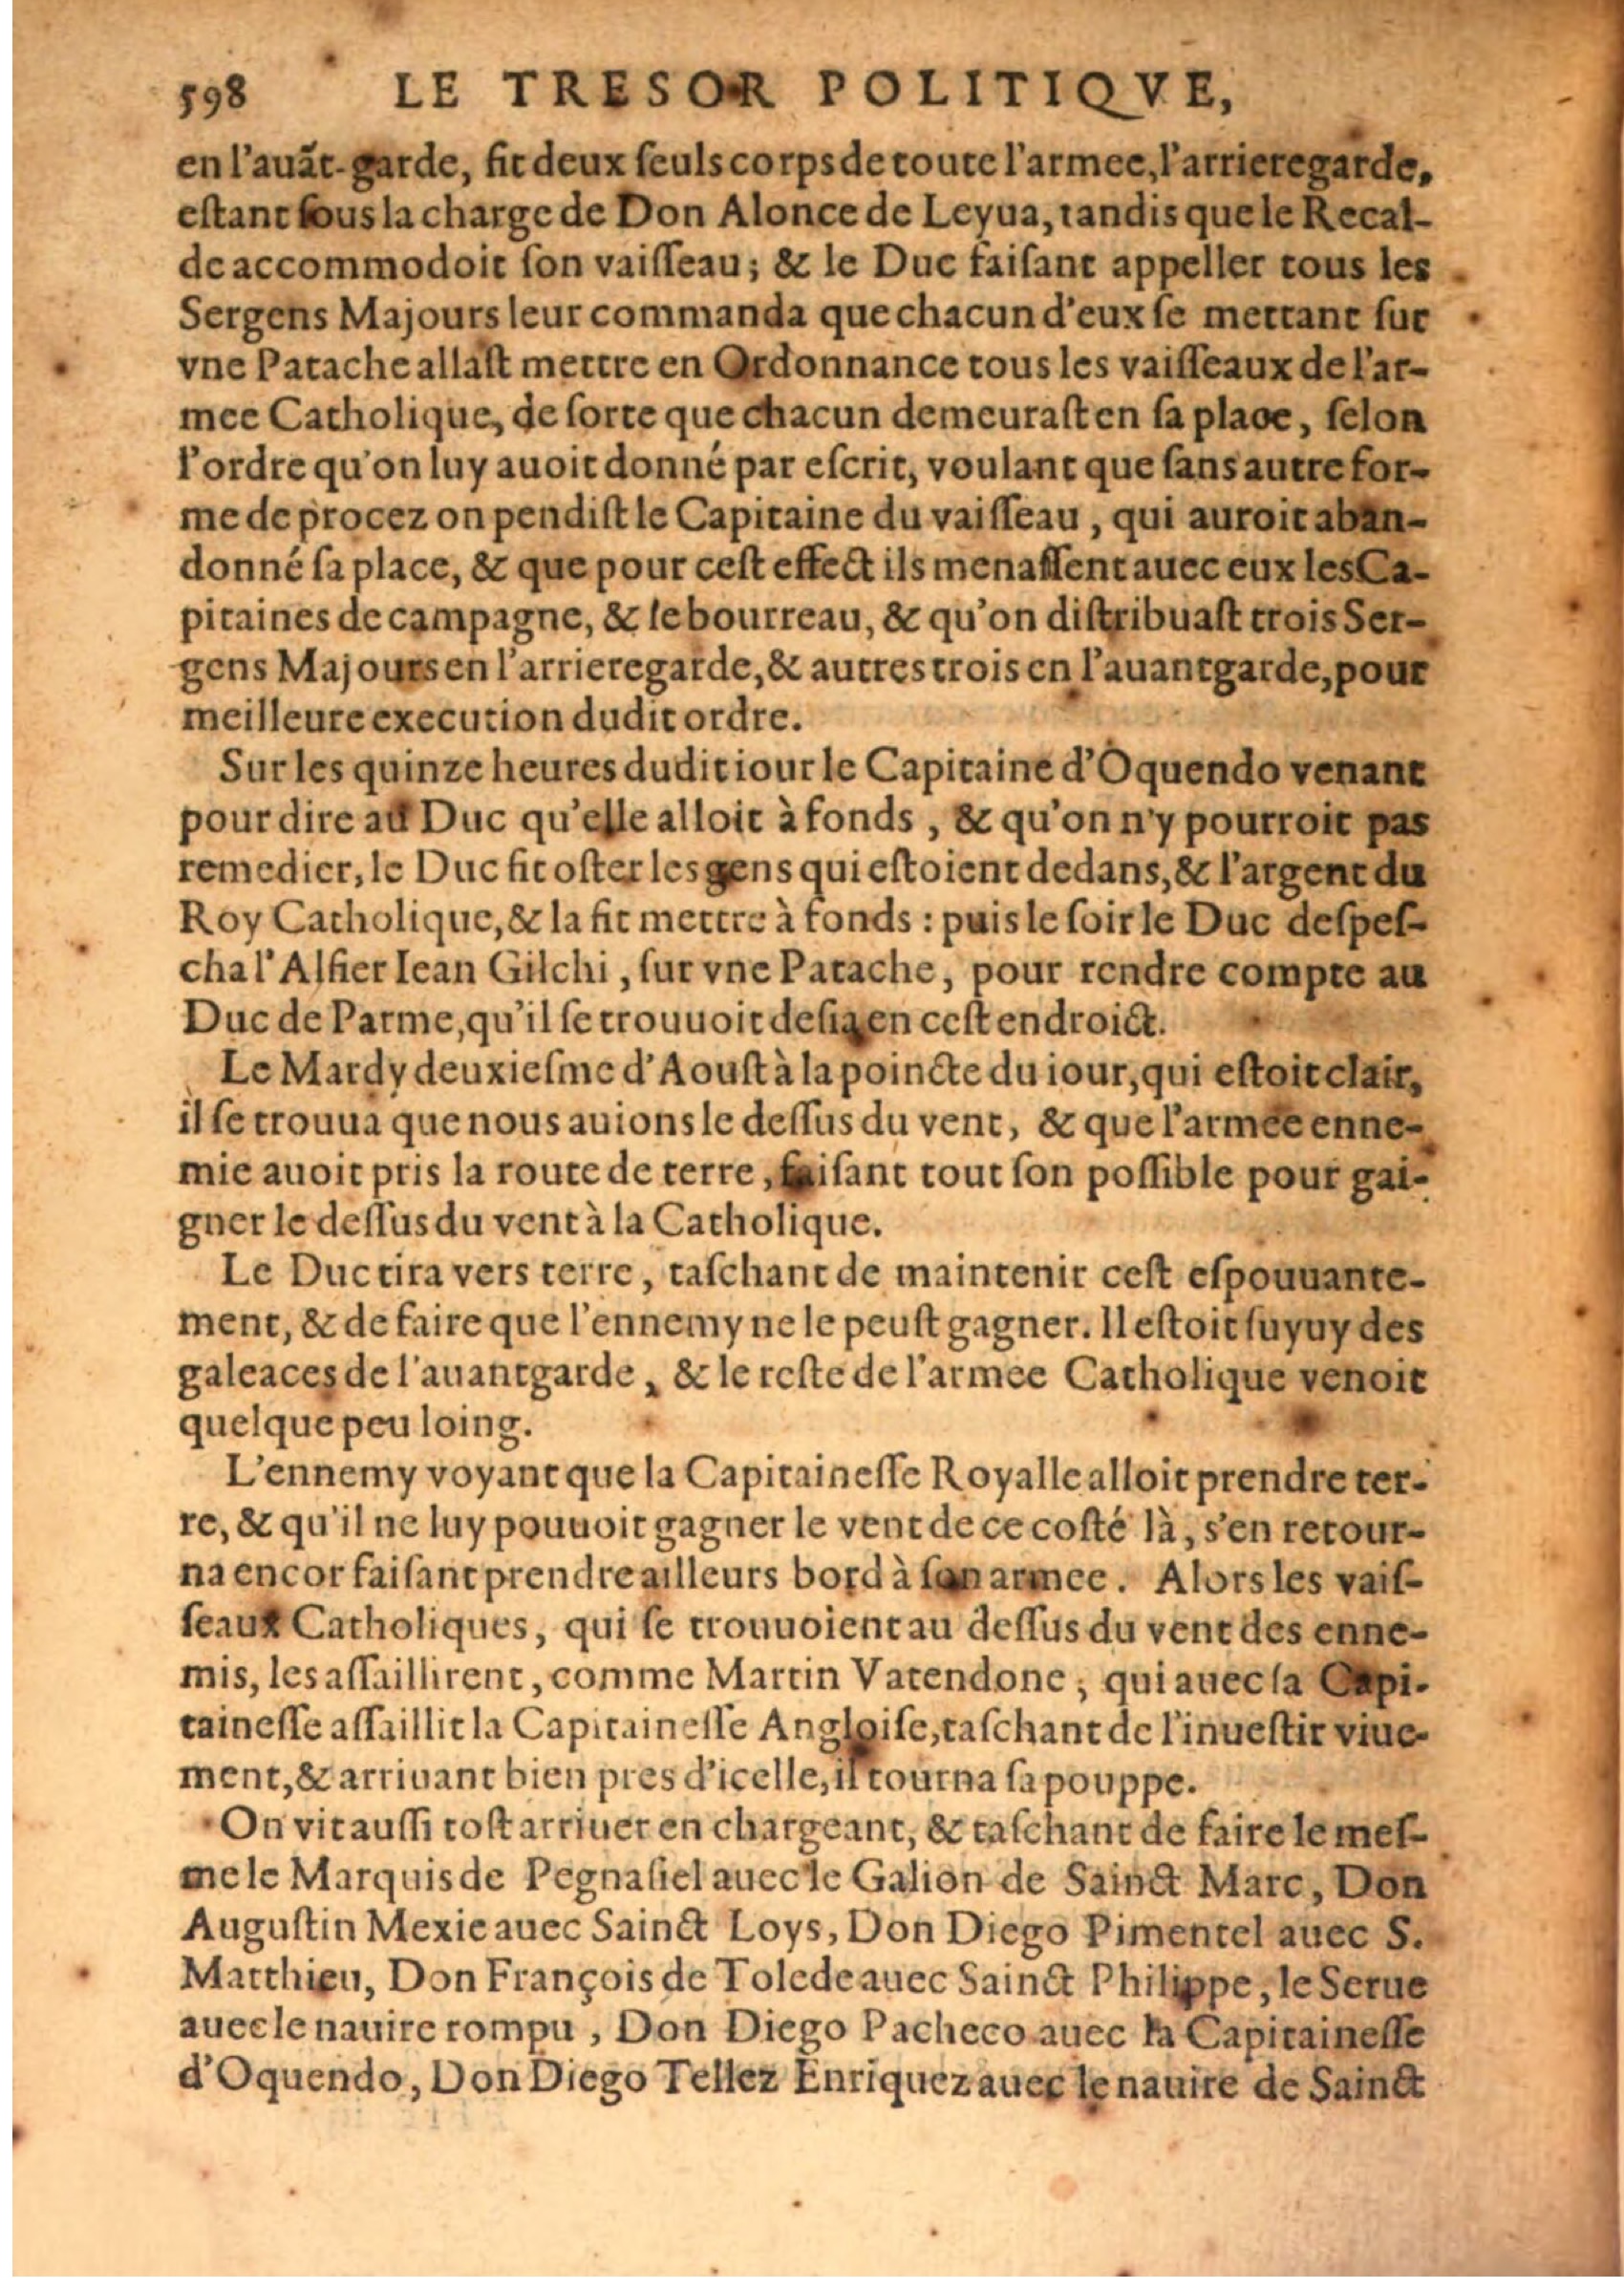 598 LE TRESOR POLITIQVE,
en l'auãt-garde, fit deux ſeuls corps de toute l'armee, l'arrieregarde,
eſtant ſous la charge de Don Alonce de Leyua, tandis que le Recal-
de accommodoit ſon vaiſſeau; & le Duc faiſant appeller tous les
Sergens Majours leur commanda que chacun d'eux ſe mettant ſur
vne Patache allaſt mettre en Ordonnance tous les vaiſſeaux de l'ar-
mee Catholique, de ſorte que chacun demeuraſt en ſa place, ſelon
l'ordre qu'on luy auoit donné par eſcrit, voulant que ſans autre for-
me de procez on pendiſt le Capitaine du vaiſſeau, qui auroit aban-
donné ſa place, & que pour ceſt effect ils menaſſent auec eux les Ca-
pitaines de campagne, & le bourreau, & qu'on diſtribuaſt trois Ser-
gens Majours en l'arrieregarde, & autres trois en l'auantgarde, pour
meilleure execution dudit ordre.
Sur les quinze heures dudit iour le Capitaine d'Oquendo venant
pour dire au Duc qu'elle alloit à fonds, & qu'on n'y pourroit pas
remedier, le Duc fit oſter les gens qui eſtoient dedans, & l'argent du
Roy Catholique, & la fit mettre à fonds : puis le ſoir le Duc deſpeſ-
cha l'Alfier Iean Gilchi, ſur vne Patache, pour rendre compte au
Duc de Parme, qu'il ſe trouuoit deſia en ceſt endroict.
Le Mardy deuxieſme d'Aouſt à la poincte du iour, qui eſtoit clair,
il ſe trouua que nous auions le deſſus du vent, & que l'armée enne-
mie auoit pris la route de terre, faiſant tout ſon poſſible pour gai-
gner le deſſus du vent à la Catholique.
Le Duc tira vers terre, taſchant de maintenir ceſt eſpouuante-
ment, & de faire que l'ennemy ne le peuſt gagner. Il eſtoit ſuyuy des
galeaces de l'auantgarde, & le reſte de l'armee Catholique venoit
quelque peu loing.
L'ennemy voyant que la Capitaineſſe Royalle alloit prendre ter-
re, & qu'il ne luy pouuoit gagner le vent de ce coſté là, s'en retour-
na encor faiſant prendre ailleurs bord à ſon armee. Alors les vaiſ-
ſeaux Catholiques, qui ſe trouuoient au deſſus du vent des enne-
mis, les aſſaillirent, comme Martin Vatendone, qui auec ſa Capi-
taineſſe aſſaillit la Capitaineſſe Angloiſe, taſchant de l'inueſtir viue-
ment, & arriuant bien pres d'icelle, il tourna ſa pouppe.
On vit auſſi toſt arriuer en chargeant, & taſchant de faire le meſ-
me le Marquis de Pegnafiel auec le Galion de Sainct Marc, Don
Auguſtin Mexie auec Sainct Loys, Don Diego Pimentel auec S.
Matthieu, Don François de Tolede auec Sainct Philippe, le Serue
auec le nauire rompu, Don Diego Pacheco auec la Capitaineſſe
d'Oquendo, Don Diego Tellez Enriquez auec le nauire de Sainct